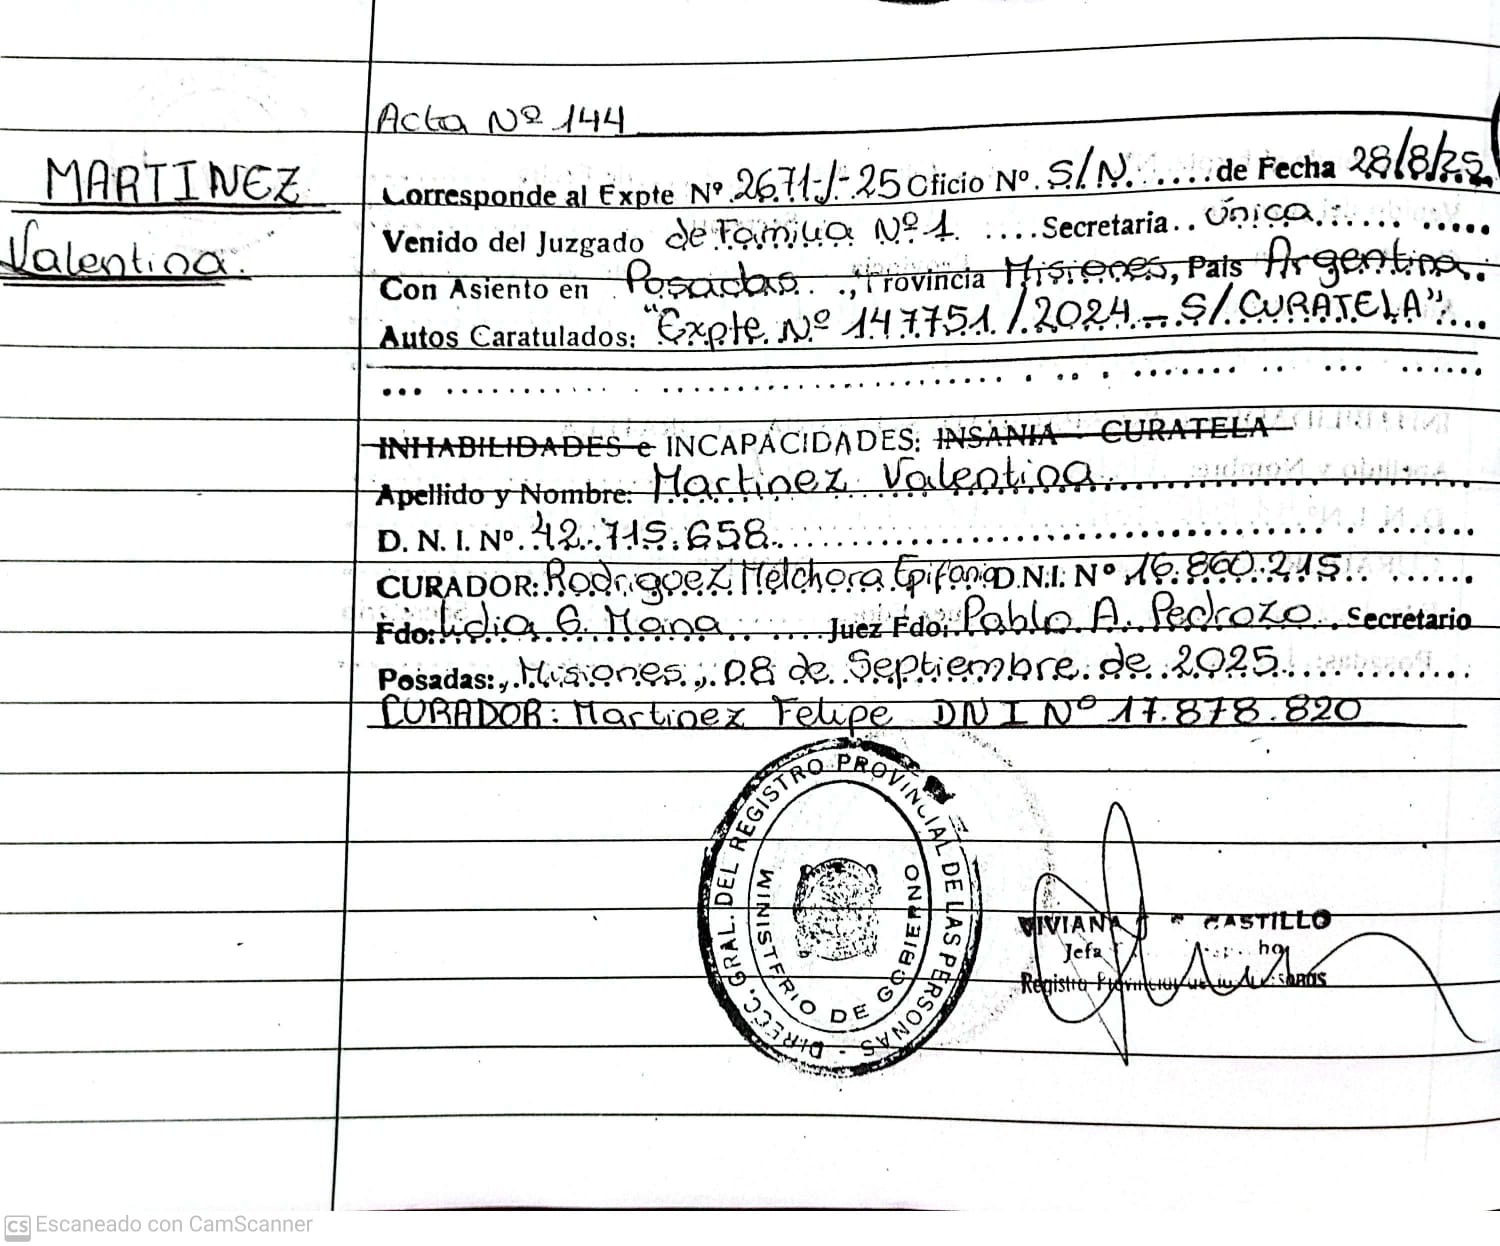 Acta Nº 144
MARTINEZ
Valentina.
Corresponde al Expte Nº 2671-/-25 Oficio Nº. S/N. .... de Fecha 28/8/25
Venido del Juzgado de Familia Nº 1. .... Secretaria .. única
Con Asiento en Posadas. , Provincia Misiones, Pais Argentina.
Autos Caratulados: "Expte. Nº 147751/2024 - S/CURATELA"
INHABILIDADES e INCAPACIDADES: INSANIA - CURATELA
Apellido y Nombre: Martinez Valentina
D. N. I. Nº. 42.715.658
CURADOR: Rodriguez Melchora Epifania D.N.I. Nº 16.860.215
Fdo: Lidia G. Mana .... Juez Fdo: Pablo A. Pedrozo. Secretario
Posadas:, Misiones, 08 de Septiembre de 2025
CURADOR: Martinez Felipe DNI Nº 17.878.820
DIRECC. GRAL. DEL REGISTRO PROVINCIAL DE LAS PERSONAS -
MINISTERIO DE GOBIERNO
VIVIANA CASTILLO
Jefa
Registro Provincial
CS Escaneado con CamScanner